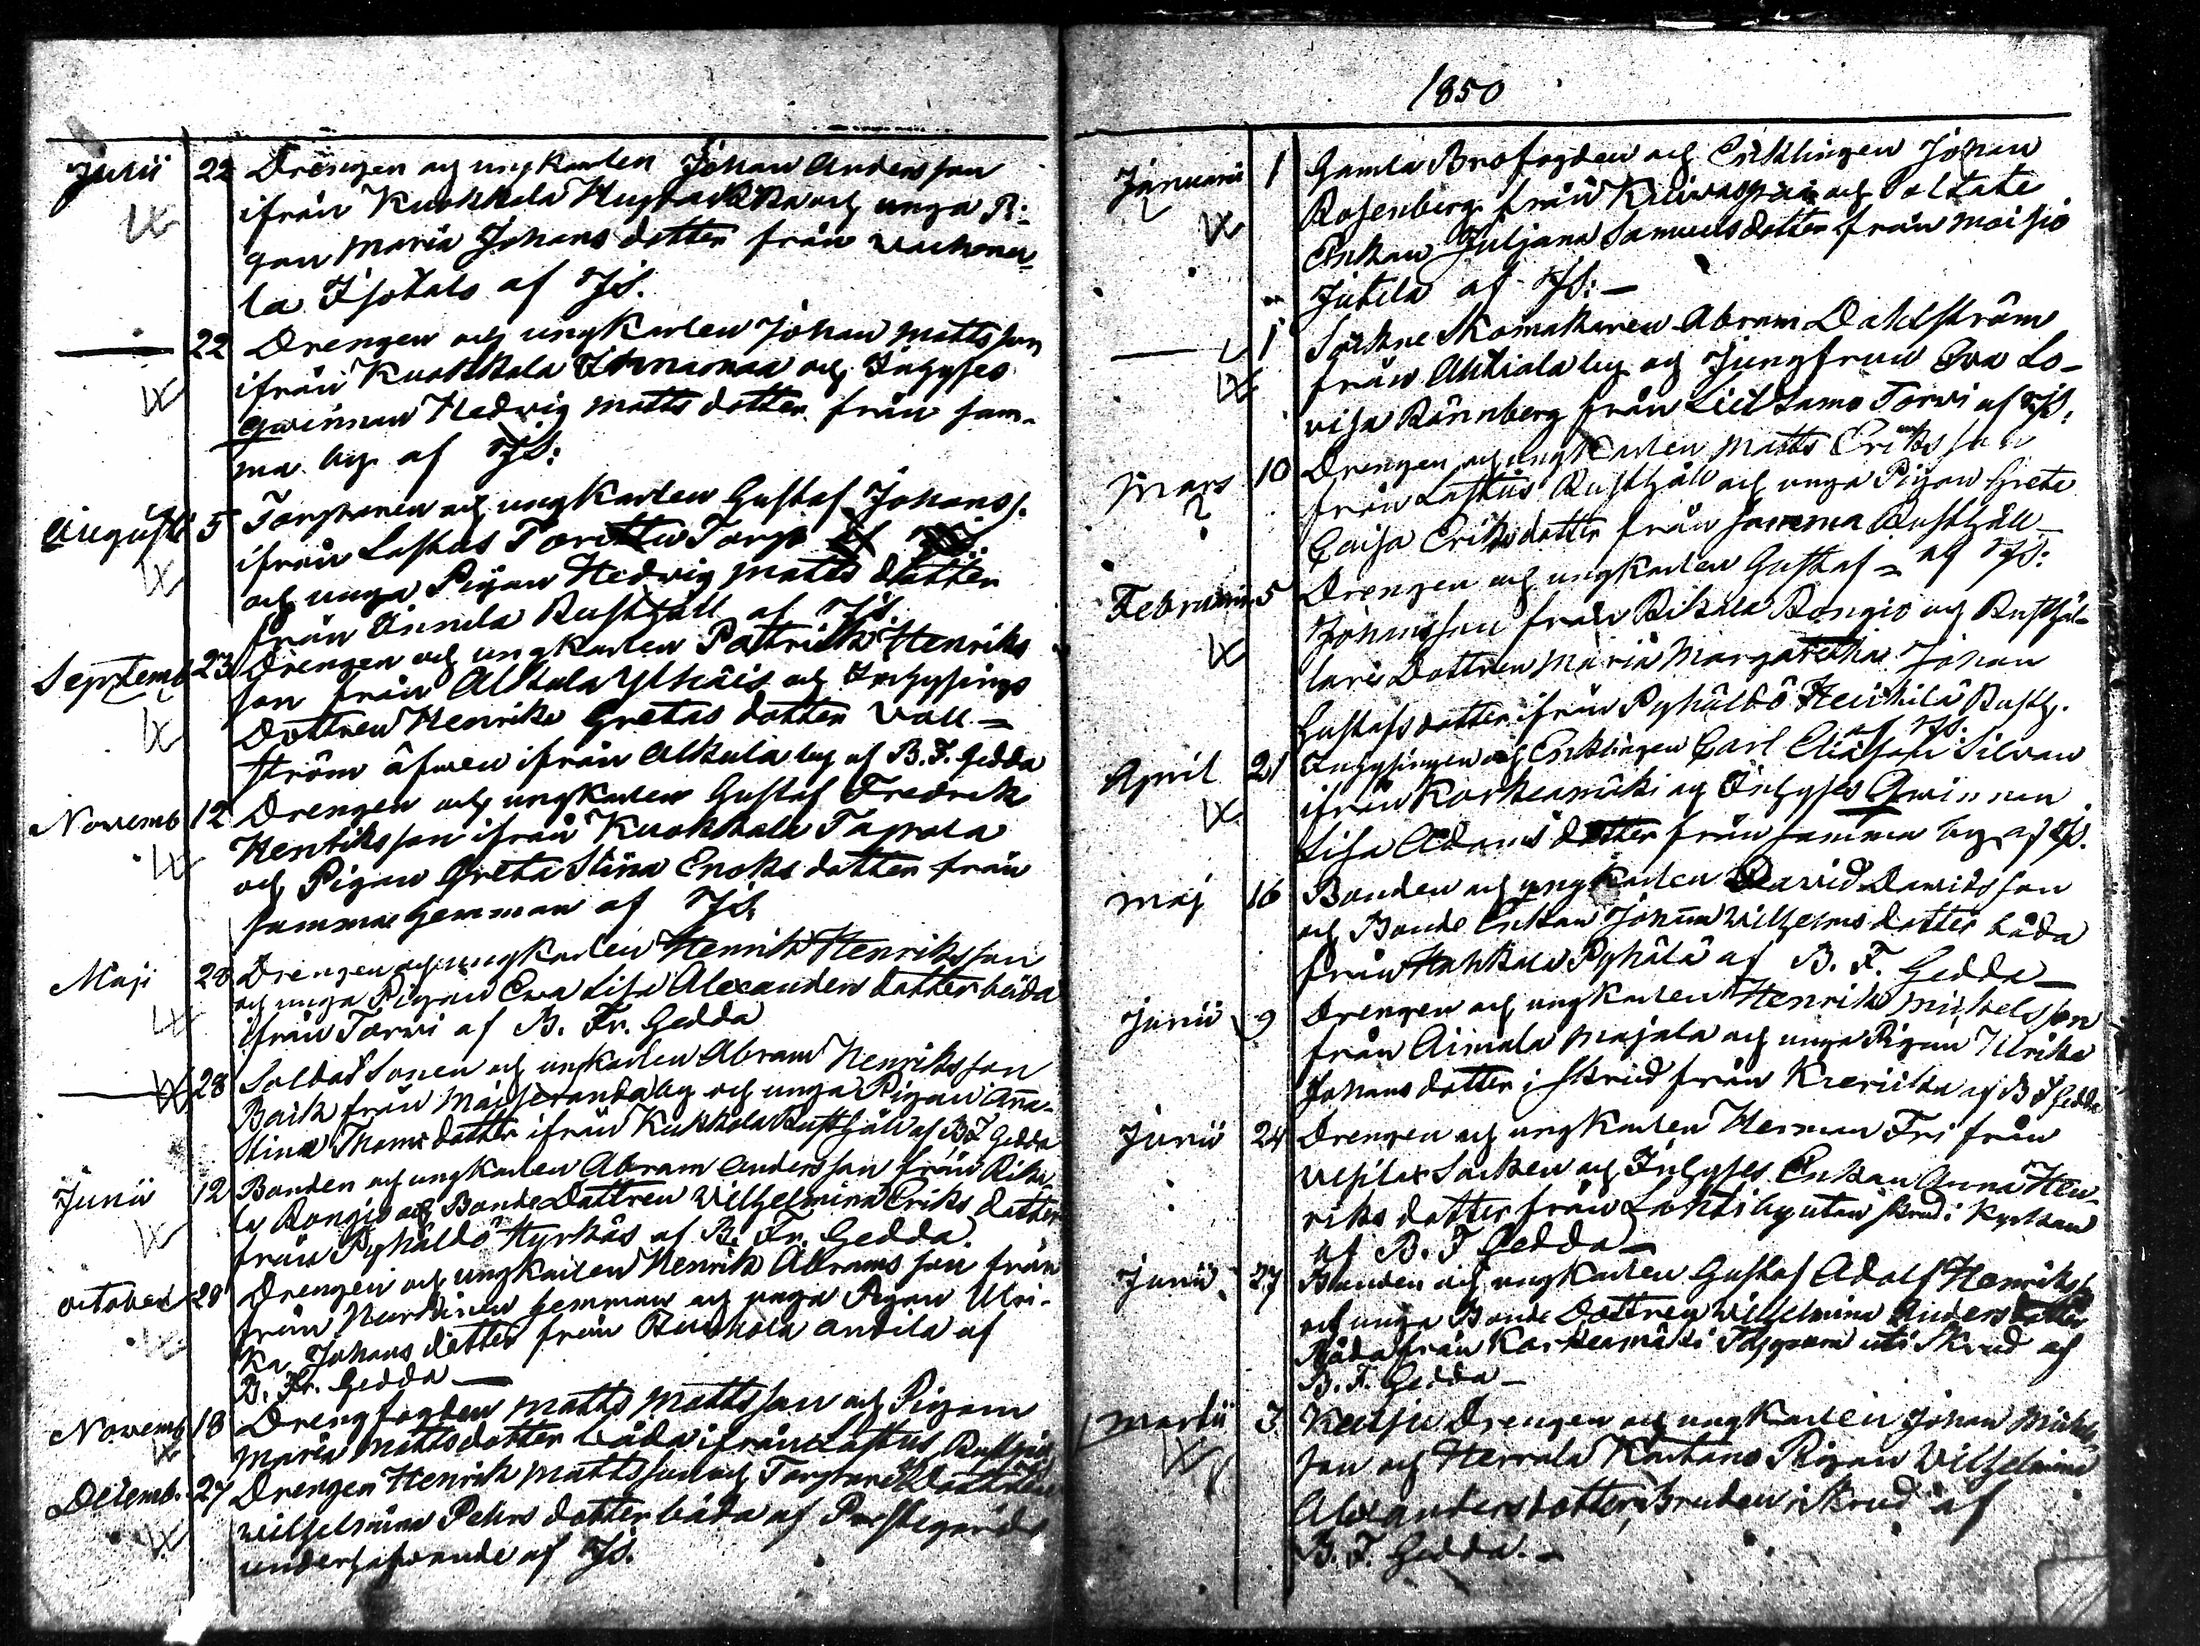 Junii 22 Drengen och ungkarlen Johan Andersson
ifrån Kuokkala och unga Pi-
gan Maria Johans dotter från
la Isotalo af JS.
22 Drengen och ungkarlen Johan Mattsson
ifrån Kuokkala och Inhyses
qwinnan Hedvig Matts dotter från sam-
ma by af JS:
Augusti 5 Torparen och ungkarlen Gustaf Johanss.
ifrån Lastus Torp
och unga Pigan Hedvig Matts dotter
från Annula Rusthåll af JS.
Septemb 23 Drengen och ungkarlen Pattrick Henriks
son från Alkula och Inhysings
Dottren Henrika Gretas dotter Vall=
ström äfwen ifrån Alkula by af B. F. Gedda
Novemb 12 Drengen och ungkarlen Gustaf Fredrik
Henriksson ifrån Kuokkala Tappola
och Pigan Greta Stina Enoks dotter från
samma hemman af JS.
Maji 28 Drengen och ungkarlen Henrik Henriksson
och unga Pigan Eva Lisa Alexanders dotter båda
ifrån Torvi af B. Fr. Gedda
28 Soldat Sonen och ungkarlen Abram Henriksson
Back från by och unga Pigan Anna
Stina Thoms dotter ifrån Kukkola Rusthåll af B F Gedda
Junii 12 Bonden och ungkarlen Abram Andersson från Rika-
la Rongio och Bonde Dottren Wilhelmina Eriks dotter
från Pyhäldö Hyrkäs af B. Fr. Gedda.
October 28 Drengen och ungkarlen Henrik Abramsson från
från hemman och unga Pigan Ulri-
ka Johans dotter från Antila af
B. Fr. Gedda
Novemb 18 Drengfogden Matts Mattsson och Pigan
Maria Matts dotter båda ifrån Lastus
Decemb. 27 Drengen Henrik Mattsson och Torpare Dottren
Wilhelmina Pehrs dotter båda af Prestegårds
underhafwande af JS.
1850
Januarii 1 Gamla Brofogden och Enklingen Johan
Rosenberg från och Soldate
Enkan Juljana Samuels dotter från Moisio
Jutila af JS:
1 Sockne Skomakaren Abram Dahlström
från Ahtiala by och Jungfrun Eva Lo-
visa Rönnberg från Torvi af JS:
Mars 10 Drengen och ungkarlen Matts Eriksson
från Lastus Rusthåll och unga Pigan Greta
Caisa Eriks dotter från samma Rusthåll
af JS:
Februarii 5 Drengen och ungkarlen Gustaf
Johansson från Rikala Rongio och Rusthål-
lare Dottren Maria Margaretha Johan
Gustafs dotter ifrån Pyhäldö Heikkilä Rusth.
af JS.
April 21 Inhysingen och Enklingen Carl Eliasson Silvan
ifrån Korkeamäki och Inhyses Qwinnan
Lisa Adams dotter från samma by af JS.
Maj 16 Bonden och ungkarlen David Davidsson
och Bonde Enkan Johanna Wilhelms dotter båda
från Hahkala Pyhälä af B. F. Gedda
Junii 9 Drengen och ungkarlen Henrik Mickelsson
från Aimala Majala och unga Pigan Ulrika
Johans dotter i skrud från af B F Gedda
Junii 24 Drengen och ungkarlen Herman Fri från
Vesilax Socken och Inhyses Enkan Anna Hen-
riks dotter från Lahti by utan skrud i Kyrkan
af B. F Gedda
Junii 27 Bonden och ungkarlen Gustaf Adolf Henrikss.
och unga Bonde Dottren Wilhelmina Anders dotter
Båda från Korkeamäki uti Skrud af
B. F. Gedda
Martii 3 Drengen och ungkarlen Johan Mickels-
son och Herrala Kartano Pigan Wilhelmina
Alexanders dotter, Bruden i Skrud af
B. F. Gedda.